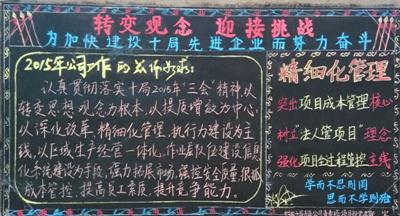 转变观念 迎接挑战
为加快建设十局先进企业而努力奋斗
2015年公司工作的总体要求:
以认真贯彻落实十局2015年“三会”精神,以
转变思想观念为根本,以提质增效为中心
以深化改革、精细化管理、执行力建设为主
线,以区域生产经营一体化、作业层队伍建设信息
化系统建设为手段,强力拓展市场,强控安全质量,狠抓
成本管控,提高员工素质,提升竞争能力。
精细化管理
突出项目成本管理核心
树立“法人管项目”理念
强化项目全过程管控主线
学而不思则罔
思而不学则殆